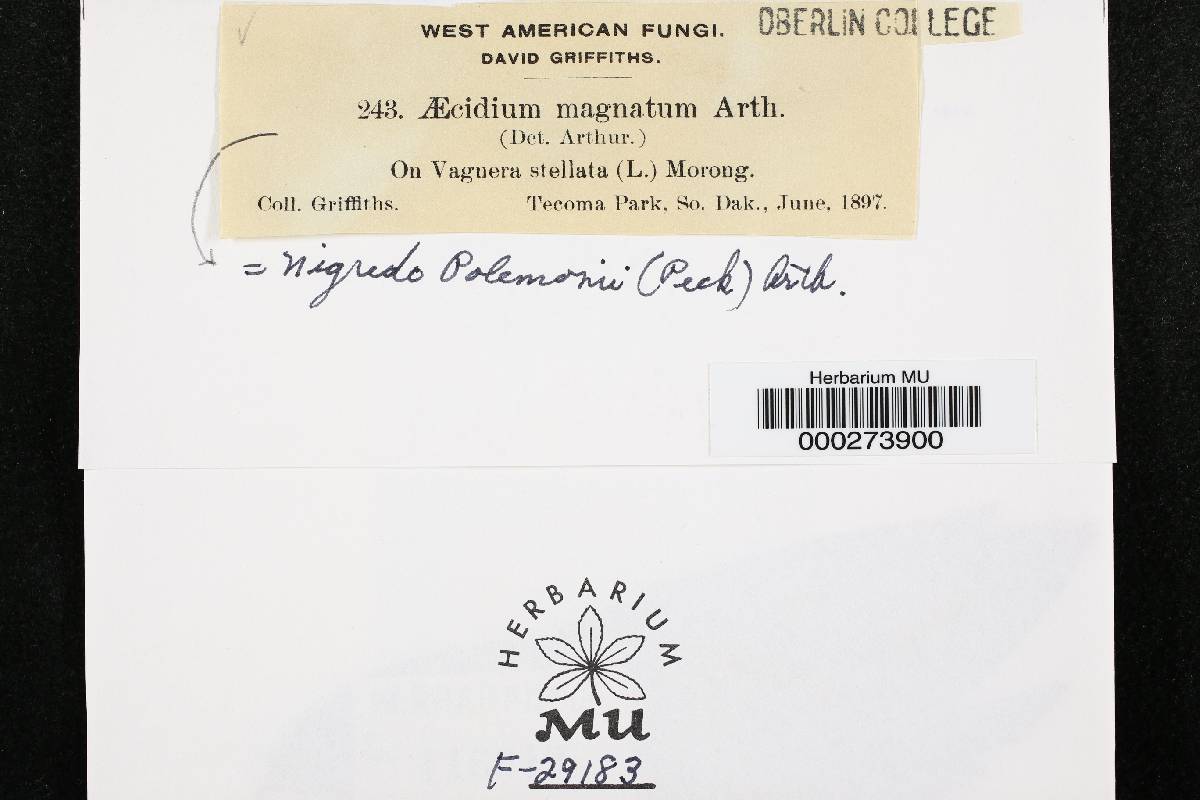 WEST AMERICAN FUNGI.
OBERLIN COLLEGE
DAVID GRIFFITHS.
243. Æcidium magnatum Arth.
(Det. Arthur.)
On Vagnera stellata (L.) Morong.
Coll. Griffiths. Tecoma Park, So. Dak., June, 1897.
= Nigredo Polemonii (Peck) Arth.
Herbarium MU
000273900
HERBARIUM
MU
F-29183